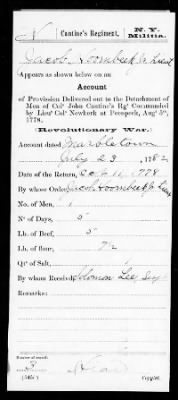 N | Cantine's Regiment, | N. Y. Militia.
Jacob Hoornbeek Jr. Lieut
Appears as shown below on an
Account
of Provision Delivered out to the Detachment of
Men of Col° John Cantine's Rg^t Commanded
by Lieu^t Col° Newkerk at Peenpeck, Aug^t 5^th,
1778.
Revolutionary War.
Account dated Marbletown
July 23, 1782
Date of the Return, 1778
By whom Order Jacob Hoornbeek Jr Lieut
No. of Men, 1
N° of Days, 5
Lb. of Beef, 5
Lb. of flour, 7½
Q^r of Salt,
By whom Received, Solomon Lee, Serj
Remarks:
Number of record:
Copyist.